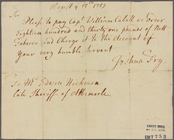 Sir
Please to pay Capt William Cabell or Order
Eighteen hundred and thirty one pounds of Nett
Tobacco and Charge it to the Account of
Your very humble Servant
Joshua Fry
To Mr Edwin Hickman
late Sheriff of Albemarle